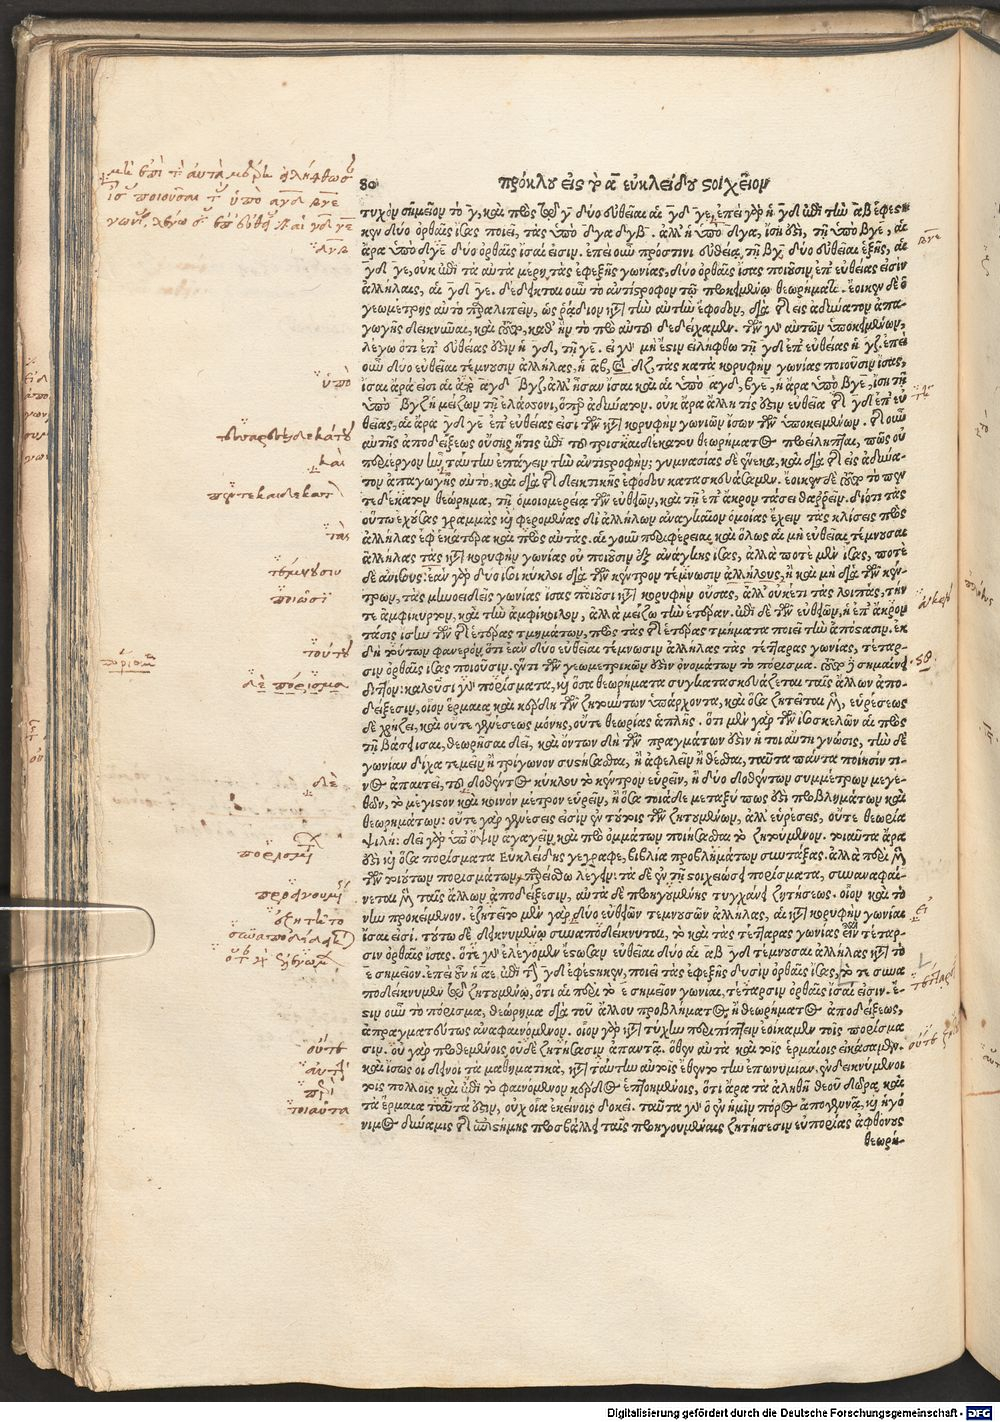 80 πρόκλου εἰς τὸ α εὐκλείδου στοιχεῖον
τυχὸν σημεῖον τὸ γ, καὶ πρὸς τῷ γ δύο εὐθεῖαι αἱ γδ γε, ἐπεὶ γὰρ ἡ γδ ἐπὶ τὴν αβ ἐφεστη-
κυῖα δύο ὀρθαῖς ἴσας ποιεῖ, τὰς ὑπὸ δγα δγβ. ἀλλ' ἡ ὑπὸ δγα, ἴση ἐστὶ, τῇ ὑπὸ βγε, αἱ
ἄρα ὑπὸ δγε δύο ὀρθαῖς ἴσαί εἰσιν. ἐπεὶ οὖν πρός τινι εὐθείᾳ τῇ βγ δύο εὐθεῖαι ἑξῆς, αἱ
γδ γε, οὐκ ἐπὶ τὰ αὐτὰ μέρη, τὰς ἐφεξῆς γωνίας, δύο ὀρθαῖς ἴσας ποιοῦσιν, ἐπ' εὐθείας εἰσὶν
ἀλλήλαις, αἱ γδ γε. δέδεικται οὖν τὸ ἀντίστροφον τῷ προκειμένῳ θεωρήματι. ἔοικεν δὲ ὁ
γεωμέτρης αὐτὸ παραλιπεῖν, ὡς ῥᾴδιον κατὰ τὴν αὐτὴν ἔφοδον, διὰ τῆς εἰς ἀδύνατον ἀπα-
γωγῆς δείκνυσθαι, καθ' ἣν τὸ πρὸ αὐτοῦ δεδείχαμεν. τῶν γὰρ αὐτῶν ὑποκειμένων,
λέγω ὅτι ἐπ' εὐθείας ἐστὶν ἡ γδ, τῇ γε. εἰ γὰρ μή ἐστιν εἰλήφθω τῇ γδ ἐπ' εὐθείας ἡ γζ. ἐπεὶ
οὖν δύο εὐθεῖαι τέμνουσιν ἀλλήλας, ἡ αβ, καὶ δζ, τὰς κατὰ κορυφὴν γωνίας ποιοῦσιν ἴσας,
ἴσαι ἄρα εἰσὶ αἱ ὑπὸ αγδ βγζ, ἀλλ' ἦσαν ἴσαι καὶ αἱ ὑπὸ αγδ, βγε, ἡ ἄρα ὑπὸ βγε, ἴση τῇ
ὑπὸ βγζ ἡ μείζων τῇ ἐλάσσονι, ὅπερ ἀδύνατον. οὐκ ἄρα ἄλλη τίς ἐστιν εὐθεῖα τῆς γδ ἐπ' εὐ
θείας, αἱ ἄρα γδ γε ἐπ' εὐθείας εἰσὶ τῶν κατὰ κορυφὴν γωνιῶν ἴσων τῶν ὑποκειμένων. τῆς οὖν
αὐτῆς ἀποδείξεως οὔσης, ἥτις ἐπὶ τοῦ τρισκαιδεκάτου θεωρήματος προείληπται, πῶς οὐ
περίεργον ἦν ταύτην ἐπάγειν τὴν ἀντιστροφήν; γυμνασίας δὲ ἕνεκα, καὶ διὰ τῆς εἰς ἀδύνα-
τον ἀπαγωγῆς αὐτὸ, καὶ διὰ τῆς δεικτικῆς ἐφόδου κατασκευάσαμεν. ἔοικεν δὲ καὶ τὸ πεν
τεδέκατον θεώρημα, τῇ ὁμοιομερείᾳ τῶν εὐθειῶν, καὶ τῇ ἐπ' ἄκρον τάσει θαῤῥεῖν. διότι τὰς
οὕτω ἐχούσας γραμμὰς καὶ φερομένας δι' ἀλλήλων ἀναγκαῖον ὁμοίας ἔχειν τὰς κλίσεις πρὸς
ἀλλήλας ἐφ' ἑκάτερα καὶ πρὸς αὐτάς. αἱ γοῦν περιφέρειαι καὶ ὅλως αἱ μὴ εὐθεῖαι τέμνουσαι
ἀλλήλας τὰς κατὰ κορυφὴν γωνίας οὐ ποιοῦσιν ἐξ ἀνάγκης ἴσας, ἀλλὰ ποτὲ μὲν ἴσας, ποτὲ
δὲ ἀνίσους: ἐὰν γὰρ δύο ἴσοι κύκλοι διὰ τῶν κέντρων τέμνωσιν ἀλλήλους, ἢ καὶ μὴ διὰ τῶν κέν-
τρων, τὰς μηνοειδεῖς γωνίας ἴσας ποιοῦσι κατὰ κορυφὴν οὔσας, ἀλλ' οὐκέτι τὰς λοιπάς, τήν
τε ἀμφίκυρτον, καὶ τὴν ἀμφίκοιλον, ἀλλὰ μείζω τὴν ἑτέραν. ἐπὶ δὲ τῶν εὐθειῶν, ἡ ἐπ' ἄκρον
τάσις ἴσην τῶν τῆς ἑτέρας τμημάτων, πρὸς τὰ τῆς ἑτέρας τμήματα ποιεῖ τὴν ἀπόστασιν. ἐκ
δὴ τούτων φανερόν, ὅτι ἐὰν δύο εὐθεῖαι τέμνωσιν ἀλλήλας τὰς τέτταρας γωνίας, τέταρ-
σιν ὀρθαῖς ἴσας ποιοῦσιν. ἕν τι τῶν γεωμετρικῶν ἐστιν ὀνομάτων τὸ πόρισμα. τοῦτο δὲ σημαίνει
διττόν: καλοῦσι γὰρ πορίσματα, καὶ ὅσα θεωρήματα συγκατασκευάζεται ταῖς ἄλλων ἀπο-
δείξεσιν, οἷον ἕρμαια καὶ κέρδη τῶν ζητούντων ὑπάρχοντα, καὶ ὅσα ζητεῖται μὲν, εὑρέσεως
δὲ χρῄζει, καὶ οὔτε γενέσεως μόνης, οὔτε θεωρίας ἁπλῆς. ὅτι μὲν γὰρ τῶν ἰσοσκελῶν αἱ πρὸς
τῇ βάσει ἴσαι, θεωρῆσαι δεῖ, καὶ ὄντων δὴ τῶν πραγμάτων ἐστὶν ἡ τοιαύτη γνῶσις, τὴν δὲ
γωνίαν δίχα τεμεῖν ἢ τρίγωνον συστήσασθαι, ἢ ἀφελεῖν ἢ θέσθαι, ταῦτα πάντα ποίησίν τι-
νος ἀπαιτεῖ, τοῦ δοθέντος κύκλου τὸ κέντρον εὑρεῖν, ἢ δύο δοθέντων συμμέτρων μεγε-
θῶν, τὸ μέγιστον καὶ κοινὸν μέτρον εὑρεῖν, ἢ ὅσα τοιάδε μεταξύ πως ἐστὶ προβλημάτων καὶ
θεωρημάτων: οὔτε γὰρ γενέσεις εἰσὶν ἐν τούτοις τῶν ζητουμένων, ἀλλ' εὑρέσεις, οὔτε θεωρία
ψιλή: δεῖ γὰρ ὑπ' ὄψιν ἀγαγεῖν καὶ πρὸ ὀμμάτων ποιήσασθαι τὸ ζητούμενον. τοιαῦτα ἄρα
ἐστὶ καὶ ὅσα πορίσματα Εὐκλείδης γέγραφε, βιβλία προβλημάτων συντάξας. ἀλλὰ περὶ μὲν
τῶν τοιούτων πορισμάτων, παρείσθω λέγειν: τὰ δὲ ἐν τῇ στοιχειώσει πορίσματα, συναναφαί-
νεται μὲν ταῖς ἄλλων ἀποδείξεσιν, αὐτὰ δὲ προηγουμένης τυγχάνει ζητήσεως. οἷον καὶ τὸ
νῦν προκείμενον. ἐζητεῖτο μὲν γὰρ, δύο εὐθειῶν τεμνουσῶν ἀλλήλας, αἱ κατὰ κορυφὴν γωνίαι
ἴσαι εἰσί. τούτῳ δὲ δεικνυμένῳ συναποδείκνυται, τὸ καὶ τὰς τέτταρας γωνίας εἶναι τέταρ-
σιν ὀρθαῖς ἴσας. ὅτε γὰρ ἐλέγομεν ἔστωσαν εὐθεῖαι δύο αἱ αβ γδ τέμνουσαι ἀλλήλας κατὰ τὸ
ε σημεῖον. ἐπεὶ οὖν ἡ αε ἐπὶ τῆς γδ ἐφέστηκεν, ποιεῖ τὰς ἐφεξῆς δυσὶν ὀρθαῖς ἴσας, τό τε συνα
ποδείκνυμεν τῷ ζητουμένῳ, ὅτι αἱ περὶ τὸ ε σημεῖον γωνίαι, τέταρσιν ὀρθαῖς ἴσαί εἰσιν. ἔ-
στιν οὖν τὸ πόρισμα, θεώρημα διὰ τοῦ ἄλλου προβλήματος ἢ θεωρήματος ἀποδείξεως,
ἀπραγματεύτως ἀναφαινόμενον. οἷον γὰρ κατὰ τύχην περιπίπτειν ἐοίκαμεν τοῖς πορίσμα
σιν. οὐ γὰρ προθεμένοις οὐδὲ ζητήσασιν ἀπαντᾷ. ὅθεν αὐτὰ καὶ τοῖς ἑρμαίοις εἰκάσαμεν.
καὶ ἴσως οἱ δεινοὶ τὰ μαθηματικὰ, κατὰ ταύτην αὐτοῖς ἔθεντο τὴν ἐπωνυμίαν, ἐνδεικνύμενοι
τοῖς πολλοῖς καὶ ἐπὶ τὸ φαινόμενον κέρδος ἐπτοημένοις, ὅτι ἄρα τὰ ἀληθῆ θεοῦ δῶρα, καὶ
τὰ ἕρμαια ταῦτά ἐστιν, οὐχ οἷα ἐκείνοις δοκεῖ. ταῦτα γὰρ ὁ ἐν ἡμῖν πόρος ἀπογεννᾷ, καὶ ἡ γό
νιμος δύναμις τῆς ἐπιστήμης προσβάλλει ταῖς προηγουμέναις ζητήσεσιν εὐπορίας ἀφθόνους
θεωρη-
ὑπὸ
τεσσαρεσκαιδεκάτου
καὶ
πεντεκαιδεκατ
τὰς
τέμνουσιν
ποιῶσι
τούτου
πόρισμα
δὲ πόρισμα
δὲ
οὔτε
αὐτῆς
περὶ
τοιαῦτα
βγε
58.
εἰ
οὔτε
Digitalisierung gefördert durch die Deutsche Forschungsgemeinschaft - DFG